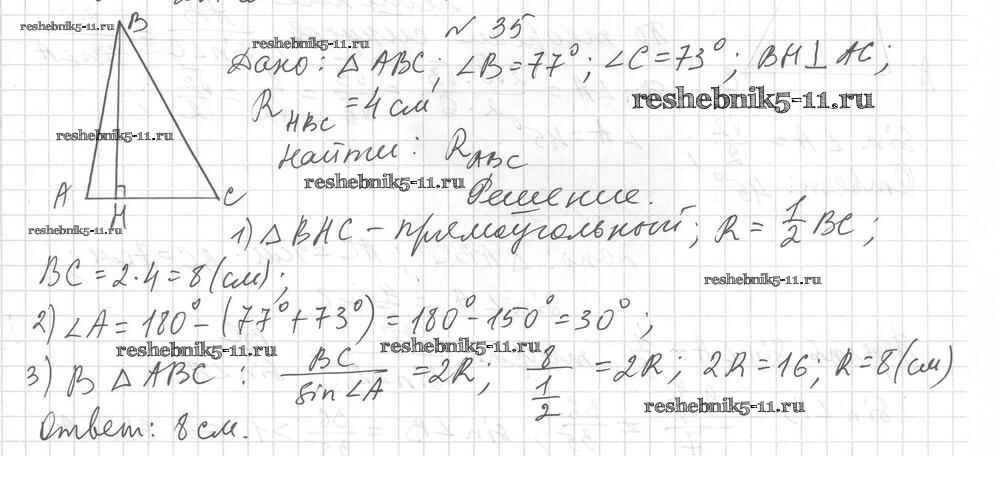 reshebnik5-11.ru
B
№ 35
reshebnik5-11.ru
Дано: △ ABC; ∠B=77°; ∠C=73°; BH⊥AC;
reshebnik5-11.ru
R HBC = 4 см
reshebnik5-11.ru
Найти: R ABC
reshebnik5-11.ru
Решение.
A H C
reshebnik5-11.ru
1) △ BHC – прямоугольный; R = 1/2 BC;
BC = 2·4 = 8 (см);
reshebnik5-11.ru
2) ∠A = 180° – (77°+73°) = 180° – 150° = 30°;
reshebnik5-11.ru reshebnik5-11.ru
3) В △ ABC : BC / sin∠A = 2R; 8 / 1/2 = 2R; 2R = 16; R = 8 (см)
reshebnik5-11.ru
Ответ: 8 см.